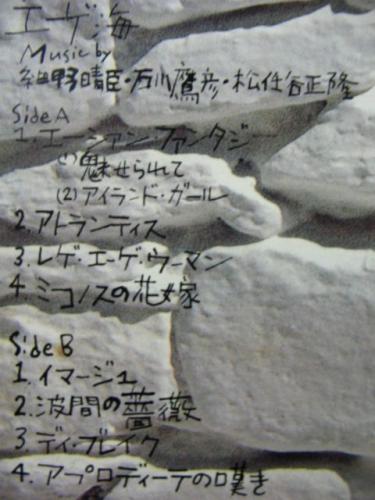 エーゲ海
Music by
細野晴臣・石川鷹彦・松任谷正隆
Side A
1. エーシァン ファンタジー
(1) 魅せられて
(2) アイランド・ガール
2. アトランティス
3. レゲ・エーゲ・ウーマン
4. ミコノスの花嫁
Side B
1. イマージュ
2. 波間の薔薇
3. デイ・ブレイク
4. アプロディーテの嘆き